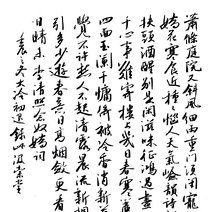 蕭條庭院又斜風細雨重門須閉寵柳
嬌花寒食近種種惱人天氣險韻詩成
扶頭酒醒別是閒滋味征鴻過盡萬
千心事難寄樓上幾日春寒簾垂
四面玉闌干慵倚被冷香消新夢
覺不許愁人不起清露晨流新桐初
引多少遊春意日高煙斂更看今
日晴未 李清照念奴嬌詞
冬大冷初過錄於堂